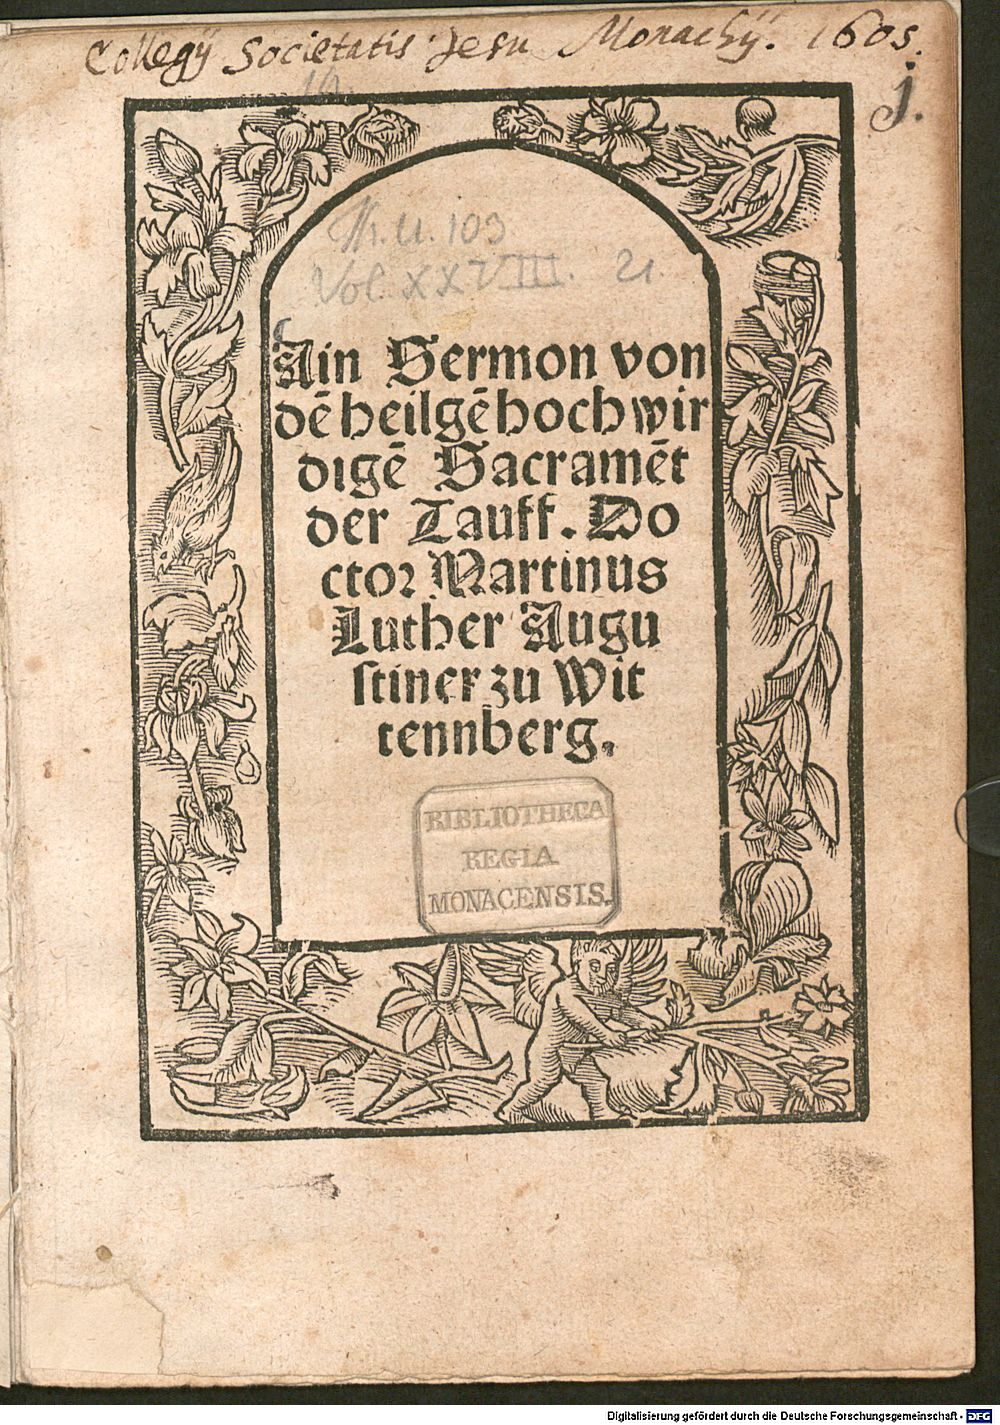 Collegij Societatis Jesu Monachij. 1605.
j.
Th. U. 103
Vol XXVIII. 21.
Ain Sermon von
dē heilgē hochwir
digē Sacramēt
der Tauff. Do
ctor Martinus
Luther Augu
stiner zu Wit
tennberg.
BIBLIOTHECA
REGIA
MONACENSIS.
Digitalisierung gefördert durch die Deutsche Forschungsgemeinschaft - DFG